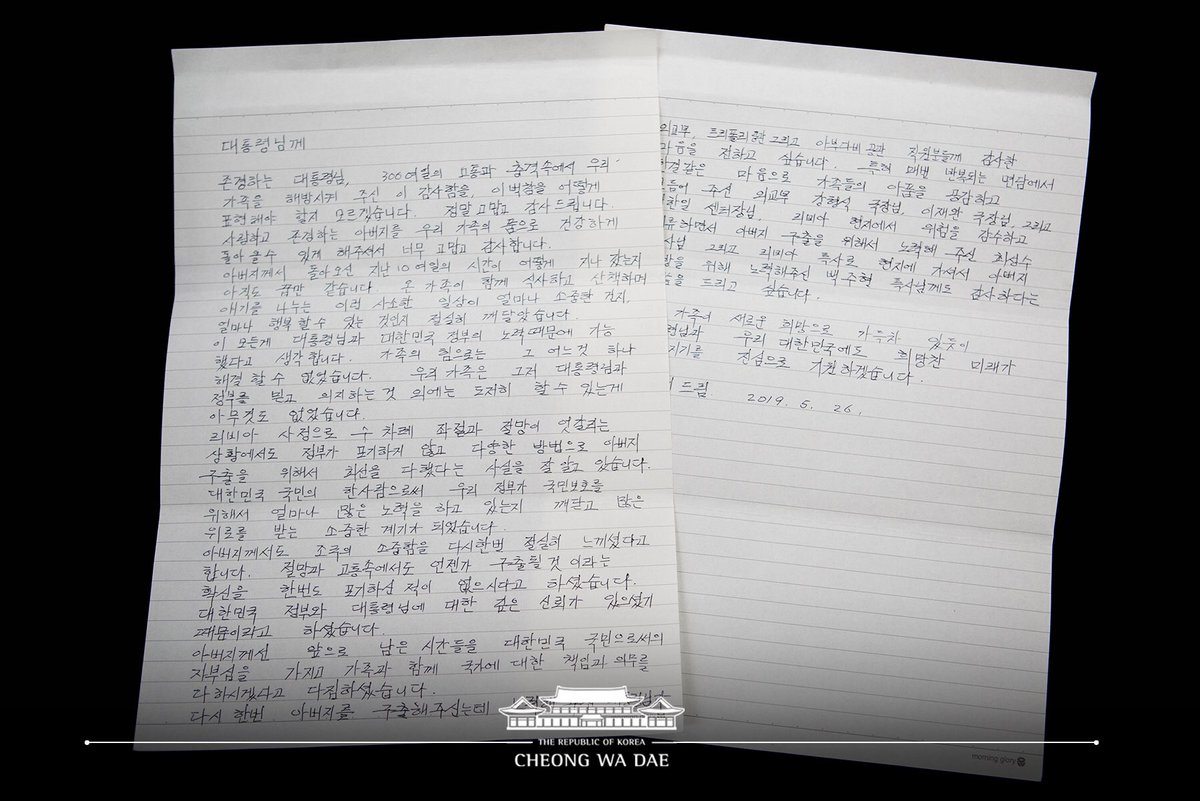 대통령님께
존경하는 대통령님, 300여일의 고통과 충격속에서 우리
가족을 해방시켜 주신 이 감사함을, 이 벅참을 어떻게
표현해야 할지 모르겠습니다. 정말 고맙고 감사드립니다.
사랑하고 존경하는 아버지를 우리 가족의 품으로 건강하게
돌아올수 있게 해주셔서 너무 고맙고 감사합니다.
아버지께서 돌아오신 지난 10여일의 시간이 어떻게 지나 갔는지
아직도 꿈만 같습니다. 온 가족이 함께 식사하고 산책하며
얘기를 나누는 이리 사소한 일상이 얼마나 소중한 건지,
얼마나 행복할수 있는 것인지 절실히 깨달았습니다.
이 모든게 대통령님과 대한민국 정부의 노력때문에 가능
했다고 생각합니다. 가족의 힘으로는 그 어느것 하나
해결 할 수 없었습니다. 우리 가족은 그저 대통령님과
정부를 믿고 의지하는 것 외에는 도저히 할 수 있는게
아무것도 없었습니다.
리비아 사정으로 수 차례 좌절과 절망이 엇갈리는
상황에서도 정부가 포기하지 않고 다양한 방법으로 아버지
구출을 위해서 최선을 다했다는 사실을 잘 알고 있습니다.
대한민국 국민의 한사람으로써 우리 정부가 국민보호를
위해서 얼마나 많은 노력을 하고 있는지 깨닫고 많은
위로를 받는 소중한 계기가 되었습니다.
아버지께서도 조국의 소중함을 다시한번 절실히 느끼셨다고
합니다. 절망과 고통속에서도 언젠가 구출될 것 이라는
확신을 한번도 포기하신 적이 없으시다고 하셨습니다.
대한민국 정부와 대통령님에 대한 깊은 신뢰가 있으셨기
때문이라고 하셨습니다.
아버지께선 앞으로 남은 시간들을 대한민국 국민으로서의
자부심을 가지고 가족과 함께 국가에 대한 책임과 의무를
다 하시겠다고 다짐하셨습니다.
다시 한번 아버지를 구출해주신는데
외교부, 트리폴리공관 그리고 아부다비 공관 직원분들께 감사한
마음을 전하고 싶습니다. 특히 매번 반복되는 면담에서
한결같은 마음으로 가족들의 아픔을 공감하고
주신 외교부 강형식 국장님, 이재완 국장님, 그리고
센터장님, 리비아 현지에서 위험을 감수하고
하면서 아버지 구출을 위해서 노력해 주신 최성수
그리고 리비아 특사로 현지에 가셔서 아버지
위해 노력해주신 백주현 특사님께도 감사하다는
드리고 싶습니다.
가족이 새로운 희망으로 가득차 있듯이
우리 대한민국에도 희망찬 미래가
진심으로 기원하겠습니다.
드림 2019. 5. 26.
morning glory
THE REPUBLIC OF KOREA
CHEONG WA DAE